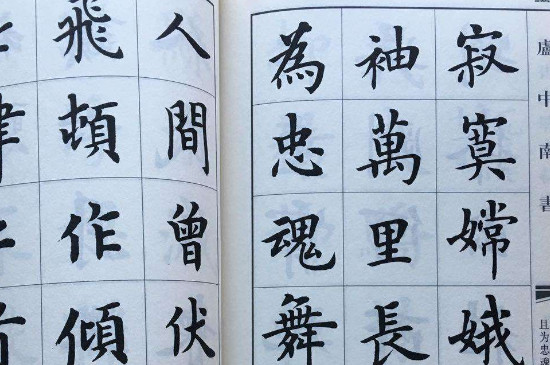 盧中南書
且为忠魂
寂寞嫦娥
袖萬里長
為忠魂舞
人間曾伏
飛頓作傾